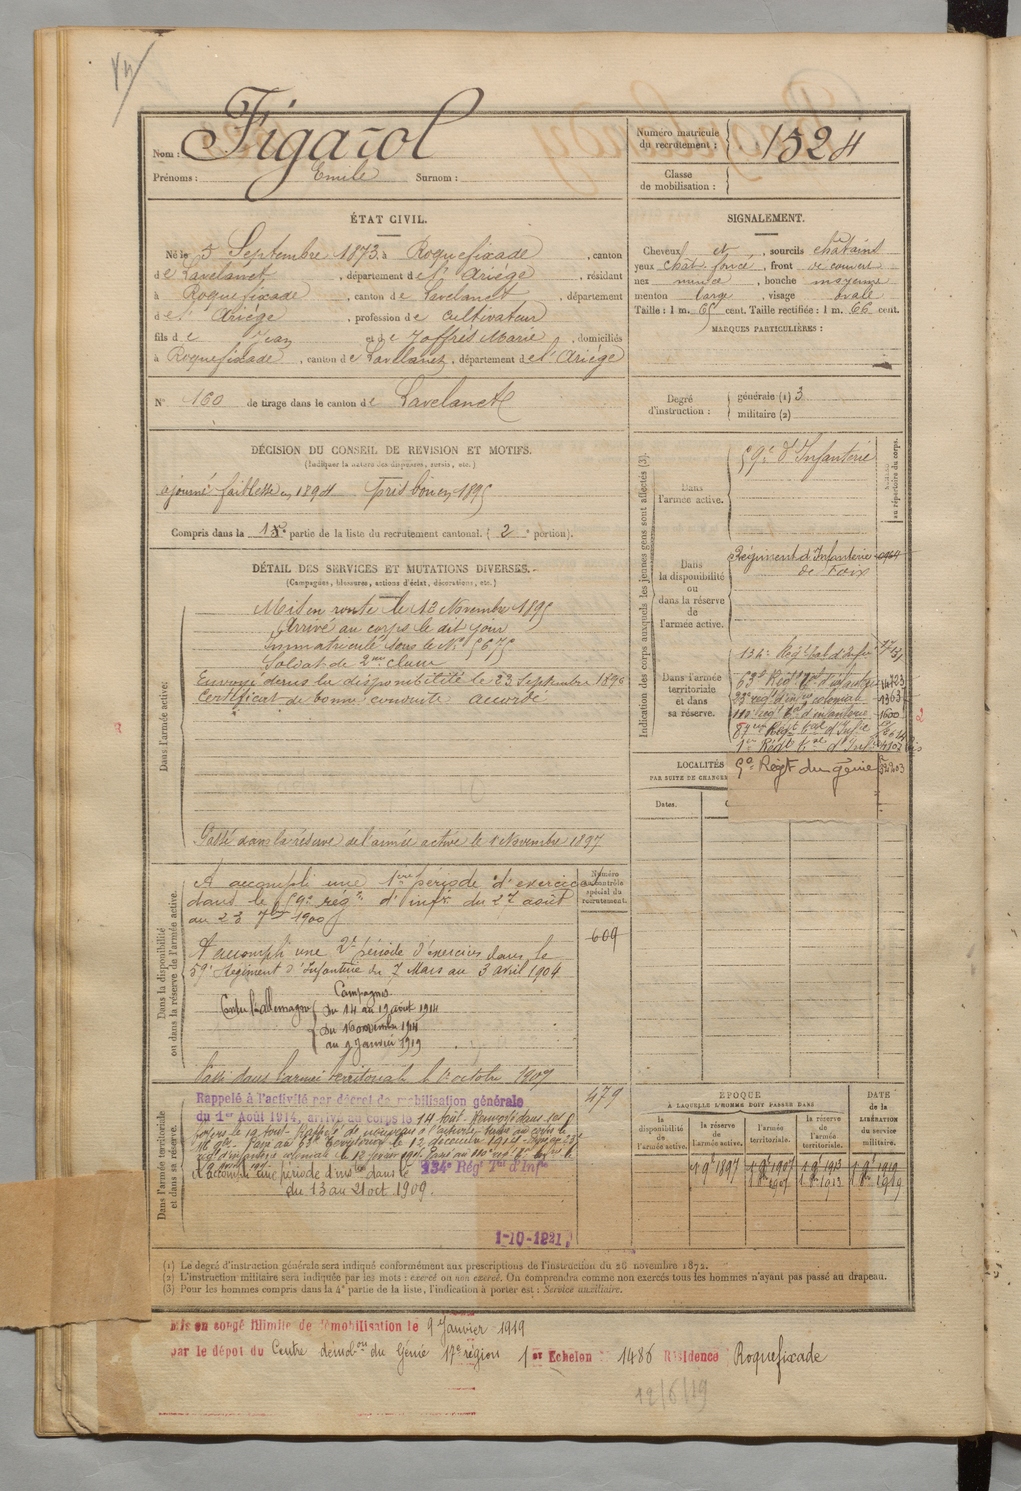 Nom : Figarol
Prénoms : Emile Surnom :
Numéro matricule du recrutement : 1524
Classe de mobilisation :
ÉTAT CIVIL.
Né le 5 Septembre 1873, à Roquefixade, canton
de Lavelanet, département de l'Ariège, résidant
à Roquefixade, canton de Lavelanet, département
de l'Ariège, profession de Cultivateur
fils de Jean et de Joffrès Marie, domiciliés
à Roquefixade, canton de Lavelanet, département de l'Ariège
N° 160 de tirage dans le canton de Lavelanet
SIGNALEMENT.
Cheveux et, sourcils châtains
yeux chat. foncé, front découvert
nez mince, bouche moyenne
menton large, visage ovale
Taille : 1 m. 65 cent. Taille rectifiée : 1 m. 66 cent.
MARQUES PARTICULIÈRES :
Degré d'instruction : générale (1) 3
militaire (2)
DÉCISION DU CONSEIL DE REVISION ET MOTIFS.
(Indiquer la nature des dispenses, sursis, etc.)
ajourné faiblesse en 1894 Pris bon en 1895
Compris dans la 1re partie de la liste du recrutement cantonal. ( 2e portion).
DÉTAIL DES SERVICES ET MUTATIONS DIVERSES.
(Campagnes, blessures, actions d'éclat, décorations, etc.)
Dans l'armée active.
Mis en route le 13 Novembre 1895
Arrivé au corps le dit jour
Immatriculé sous le N° 5675
Soldat de 2me classe
Envoyé dans la disponibilité le 23 Septembre 1896
Certificat de bonne conduite accordé
Passé dans la réserve de l'armée active le 1 Novembre 1897
Indication des corps auxquels les jeunes gens sont affectés (3).
Dans l'armée active.
59e d'Infanterie
NUMÉRO au répertoire du corps.
Dans la disponibilité ou dans la réserve de l'armée active.
Régiment d'Infanterie de Foix
Dans l'armée territoriale et dans sa réserve.
134e Régt tal d'Infie
63e Régt tal d'infanterie 14723
33e régt d'infie coloniale 1363
110e régt tal d'infanterie 1600
87me Régt tal d'Infie
1er Régt tal d'Infie
9e Régt du génie
LOCALITÉS
PAR SUITE DE CHANGE
Dates.
Dans la disponibilité ou dans la réserve de l'armée active.
Numéro au contrôle spécial du recrutement.
A accompli une 1ère période d'exercices
dans le 59e régt d'infie du 27 août
au 23 7bre 1900
609
A accompli une 2e période d'exercices dans le
59e Régiment d'Infanterie du 7 Mars au 3 avril 1904
Campagnes
Contre l'Allemagne du 14 au 19 août 1914
du 16 novembre 1914
au 9 Janvier 1919
Passé dans l'armée territoriale le 1er octobre 1907
Dans l'armée territoriale et dans sa réserve.
479
Rappelé à l'activité par décret de mobilisation générale
du 1er Août 1914, arrivé au corps le 14 août. Renvoyé dans ses
foyers le 19 août. Rappelé de nouveau à l'activité
Passé au 63e Territorial le 12 décembre 1914
régt d'infanterie coloniale le 12 février 1915. Passé au 110e régt
A accompli une période d'instion dans le 134e Régt Tal d'Infie
du 13 au 21 oct 1909.
1-10-1921
ÉPOQUE
À LAQUELLE L'HOMME DOIT PASSER DANS
la disponibilité de l'armée active.
la réserve de l'armée active.
l'armée territoriale.
la réserve de l'armée territoriale.
DATE de la LIBÉRATION du service militaire.
(1) Le degré d'instruction générale sera indiqué conformément aux prescriptions de l'instruction du 26 novembre 1872.
(2) L'instruction militaire sera indiquée par les mots : exercé ou non exercé. On comprendra comme non exercés tous les hommes n'ayant pas passé au drapeau.
(3) Pour les hommes compris dans la 4e partie de la liste, l'indication à porter est : Service auxiliaire.
Mis en congé illimité de démobilisation le 9 Janvier 1919
par le dépôt du Centre démobon du Génie 17e région 1er Echelon : 1486 Résidence Roquefixade
12/6/19